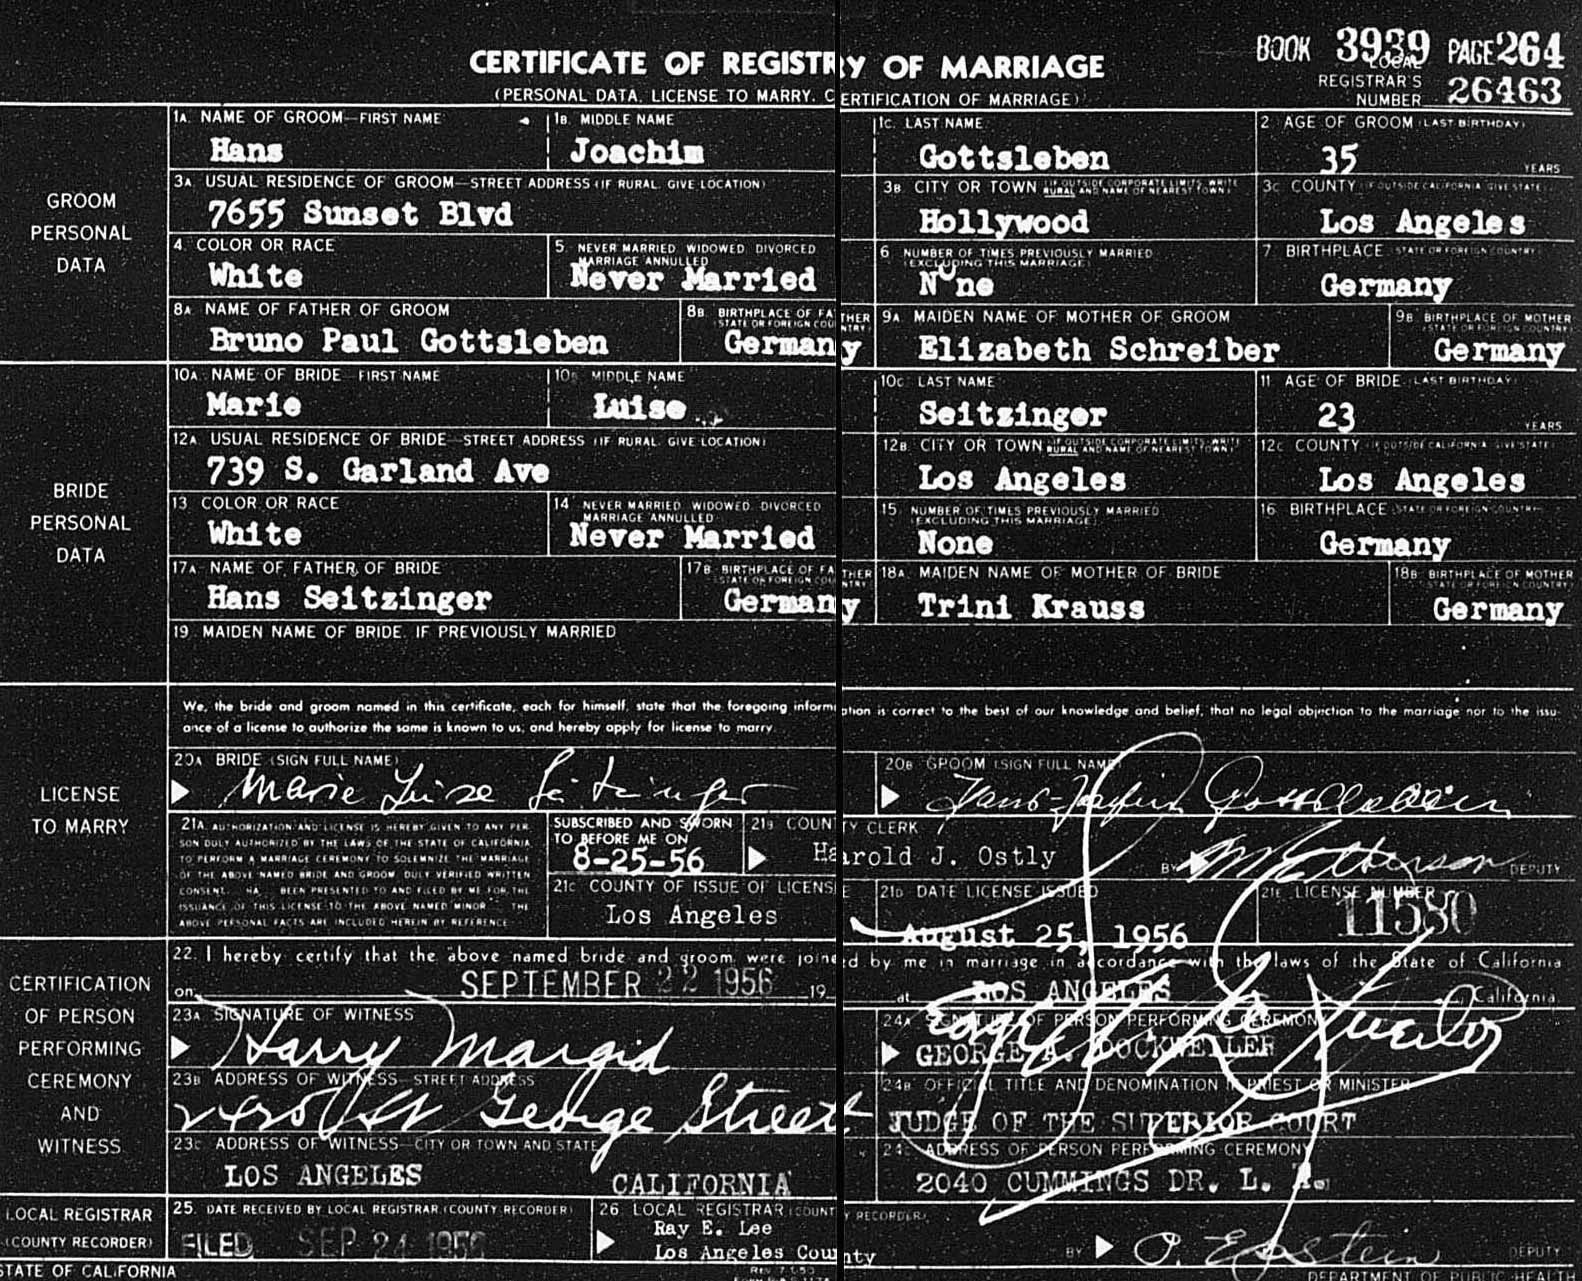 CERTIFICATE OF REGISTRY OF MARRIAGE
(PERSONAL DATA, LICENSE TO MARRY, CERTIFICATION OF MARRIAGE)
BOOK 3939 PAGE 264
LOCAL REGISTRAR'S NUMBER 26463
GROOM PERSONAL DATA
1A. NAME OF GROOM—FIRST NAME 1B. MIDDLE NAME 1C. LAST NAME 2. AGE OF GROOM (LAST BIRTHDAY)
Hans Joachim Gottsleben 35 YEARS
3A. USUAL RESIDENCE OF GROOM—STREET ADDRESS (IF RURAL, GIVE LOCATION) 3B. CITY OR TOWN (IF OUTSIDE CORPORATE LIMITS, WRITE RURAL AND NAME OF NEAREST TOWN) 3C. COUNTY (IF OUTSIDE CALIFORNIA, GIVE STATE)
7655 Sunset Blvd Hollywood Los Angeles
4. COLOR OR RACE 5. NEVER MARRIED, WIDOWED, DIVORCED, MARRIAGE ANNULLED 6. NUMBER OF TIMES PREVIOUSLY MARRIED (EXCLUDING THIS MARRIAGE) 7. BIRTHPLACE (STATE OR FOREIGN COUNTRY)
White Never Married None Germany
8A. NAME OF FATHER OF GROOM 8B. BIRTHPLACE OF FATHER (STATE OR FOREIGN COUNTRY) 9A. MAIDEN NAME OF MOTHER OF GROOM 9B. BIRTHPLACE OF MOTHER (STATE OR FOREIGN COUNTRY)
Bruno Paul Gottsleben Germany Elizabeth Schreiber Germany
BRIDE PERSONAL DATA
10A. NAME OF BRIDE—FIRST NAME 10B. MIDDLE NAME 10C. LAST NAME 11. AGE OF BRIDE (LAST BIRTHDAY)
Marie Luise Seitzinger 23 YEARS
12A. USUAL RESIDENCE OF BRIDE—STREET ADDRESS (IF RURAL, GIVE LOCATION) 12B. CITY OR TOWN (IF OUTSIDE CORPORATE LIMITS, WRITE RURAL AND NAME OF NEAREST TOWN) 12C. COUNTY (IF OUTSIDE CALIFORNIA, GIVE STATE)
739 S. Garland Ave Los Angeles Los Angeles
13. COLOR OR RACE 14. NEVER MARRIED, WIDOWED, DIVORCED, MARRIAGE ANNULLED 15. NUMBER OF TIMES PREVIOUSLY MARRIED (EXCLUDING THIS MARRIAGE) 16. BIRTHPLACE (STATE OR FOREIGN COUNTRY)
White Never Married None Germany
17A. NAME OF FATHER OF BRIDE 17B. BIRTHPLACE OF FATHER (STATE OR FOREIGN COUNTRY) 18A. MAIDEN NAME OF MOTHER OF BRIDE 18B. BIRTHPLACE OF MOTHER (STATE OR FOREIGN COUNTRY)
Hans Seitzinger Germany Trini Krauss Germany
19. MAIDEN NAME OF BRIDE, IF PREVIOUSLY MARRIED
LICENSE TO MARRY
We, the bride and groom named in this certificate, each for himself, state that the foregoing information is correct to the best of our knowledge and belief, that no legal objection to the marriage nor to the issu-
ance of a license to authorize the same is known to us, and hereby apply for license to marry.
20A. BRIDE (SIGN FULL NAME) 20B. GROOM (SIGN FULL NAME)
Marie Luise Seitzinger Hans-Joachim Gottsleben
21A. AUTHORIZATION AND LICENSE IS HEREBY GIVEN TO ANY PER-
SON DULY AUTHORIZED BY THE LAWS OF THE STATE OF CALIFORNIA
TO PERFORM A MARRIAGE CEREMONY TO SOLEMNIZE THE MARRIAGE
OF THE ABOVE NAMED BRIDE AND GROOM. DULY VERIFIED WRITTEN
CONSENT, HA BEEN PRESENTED TO AND FILED BY ME FOR THE
ISSUANCE OF THIS LICENSE TO THE ABOVE NAMED MINOR THE
ABOVE PERSONAL FACTS ARE INCLUDED HEREIN BY REFERENCE
SUBSCRIBED AND SWORN TO BEFORE ME ON
8-25-56
21B. COUNTY CLERK
Harold J. Ostly
BY DEPUTY
21C. COUNTY OF ISSUE OF LICENSE 21D. DATE LICENSE ISSUED 21E. LICENSE NUMBER
Los Angeles August 25, 1956 11580
CERTIFICATION OF PERSON PERFORMING CEREMONY AND WITNESS
22. I hereby certify that the above named bride and groom were joined by me in marriage in accordance with the laws of the State of California
on SEPTEMBER 22 1956 19 at LOS ANGELES, California
23A. SIGNATURE OF WITNESS 24A. SIGNATURE OF PERSON PERFORMING CEREMONY
Harry Margid GEORGE A. DOCKWEILER
23B. ADDRESS OF WITNESS—STREET ADDRESS 24B. OFFICIAL TITLE AND DENOMINATION IF PRIEST OR MINISTER
St George Street JUDGE OF THE SUPERIOR COURT
23C. ADDRESS OF WITNESS—CITY OR TOWN AND STATE 24C. ADDRESS OF PERSON PERFORMING CEREMONY
LOS ANGELES CALIFORNIA 2040 CUMMINGS DR. L. A.
LOCAL REGISTRAR (COUNTY RECORDER)
25. DATE RECEIVED BY LOCAL REGISTRAR (COUNTY RECORDER) 26. LOCAL REGISTRAR (COUNTY RECORDER)
FILED SEP 24 1956 Ray E. Lee
Los Angeles County
BY P. Epstein DEPUTY
STATE OF CALIFORNIA DEPARTMENT OF PUBLIC HEALTH